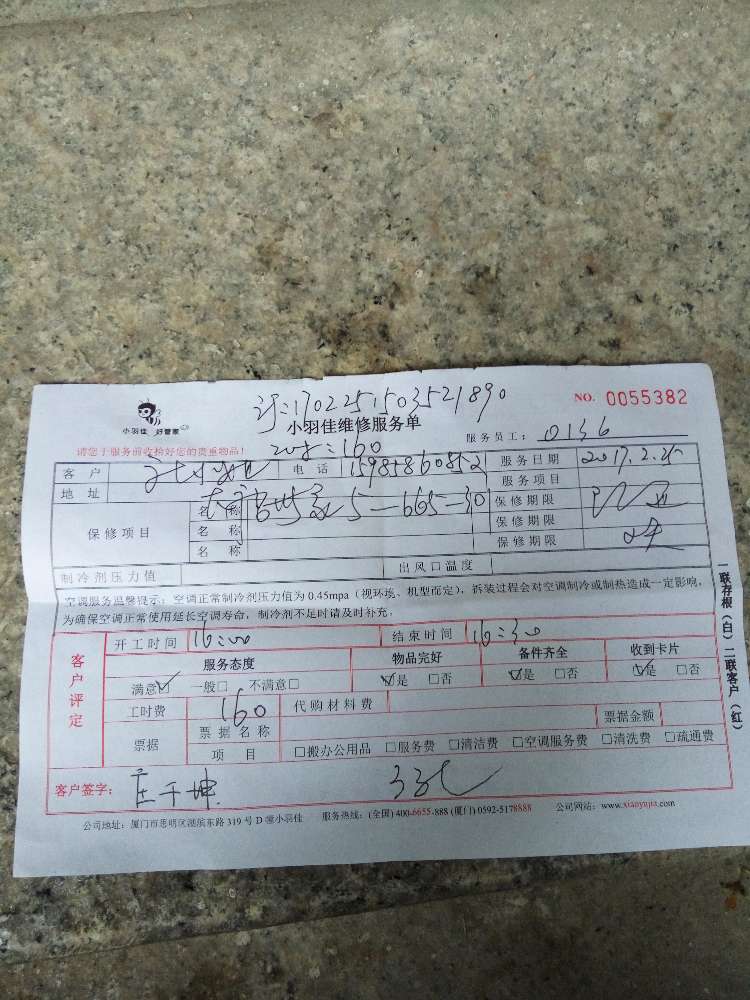 1702251503521890
NO. 0055382
小羽佳 好管家
小羽佳维修服务单
服务员工: 0136
请您于服务前收拾好您的贵重物品!
160
客户 电话 15985860852 服务日期 2017.2.25
服务项目
地址 5-665-30
保修项目 名称 保修期限
名称 保修期限
名称 保修期限
制冷剂压力值 出风口温度
空调服务温馨提示: 空调正常制冷剂压力值为 0.45mpa (视环境、机型而定), 拆装过程会对空调制冷或制热造成一定影响,
为确保空调正常使用延长空调寿命, 制冷剂不足时请及时补充。
一联存根(白) 二联客户(红)
客户评定
开工时间 16:00 结束时间 16:30
服务态度 物品完好 备件齐全 收到卡片
满意☑ 一般□ 不满意□ ☑是 □否 ☑是 □否 ☑是 □否
工时费 160 代购材料费
票据 票据名称 票据金额
项目 □搬办公用品 □服务费 □清洁费 □空调服务费 □清洗费 □疏通费
客户签字:
公司地址: 厦门市思明区湖滨东路 319 号 D 幢小羽佳 服务热线: (全国) 400-6655-888 (厦门) 0592-5178888 公司网站: www.xiaoyujia.com